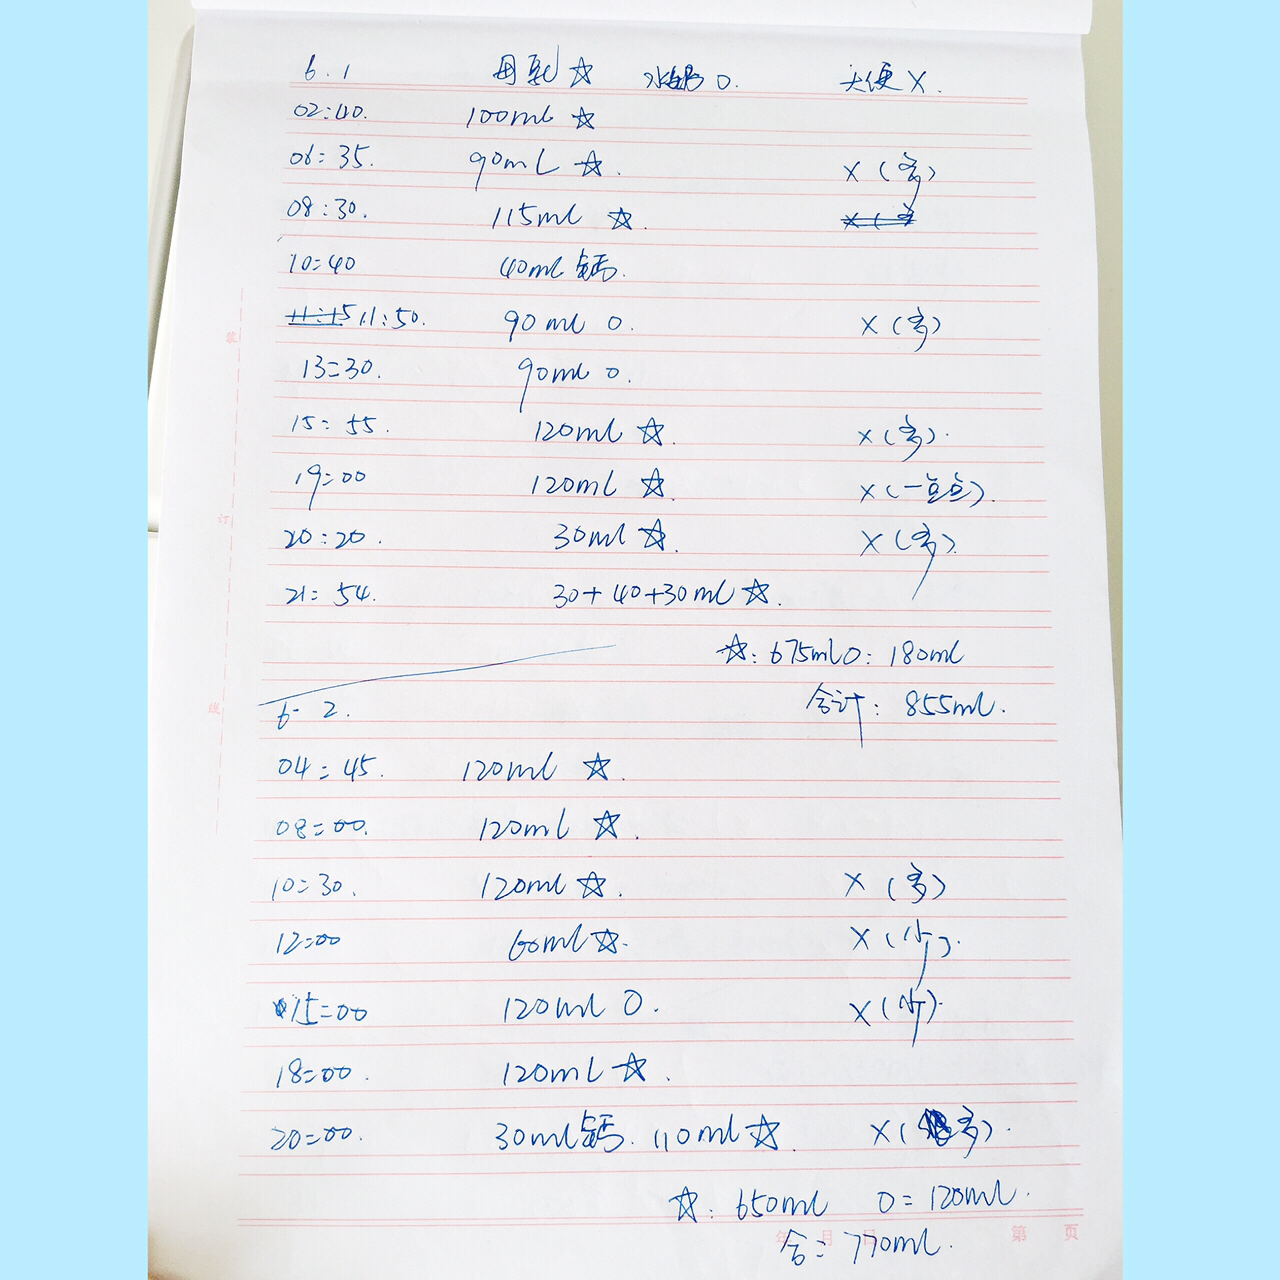 6.1 母乳☆ 水奶O. 大便X.
02:40. 100ml ☆
06:35. 90ml ☆. X(多)
08:30. 115ml ☆.
10:40 40ml 钙.
11:15 11:50. 90ml O. X(多)
13:30. 90ml O.
15:55. 120ml ☆. X(多).
19:00 120ml ☆. X(一点点).
20:20. 30ml ☆. X(多).
21:54. 30+40+30ml ☆.
☆: 675ml O: 180ml
合计: 855ml.
6- 2.
04:45. 120ml ☆.
08:00. 120ml ☆.
10:30. 120ml ☆. X(多)
12:00 60ml ☆. X(少).
15:00 120ml O. X(少).
18:00. 120ml ☆.
20:00. 30ml钙. 110ml ☆. X(多).
☆: 650ml O= 120ml.
合: 770ml.
年 月 日 第 页
装
订
线